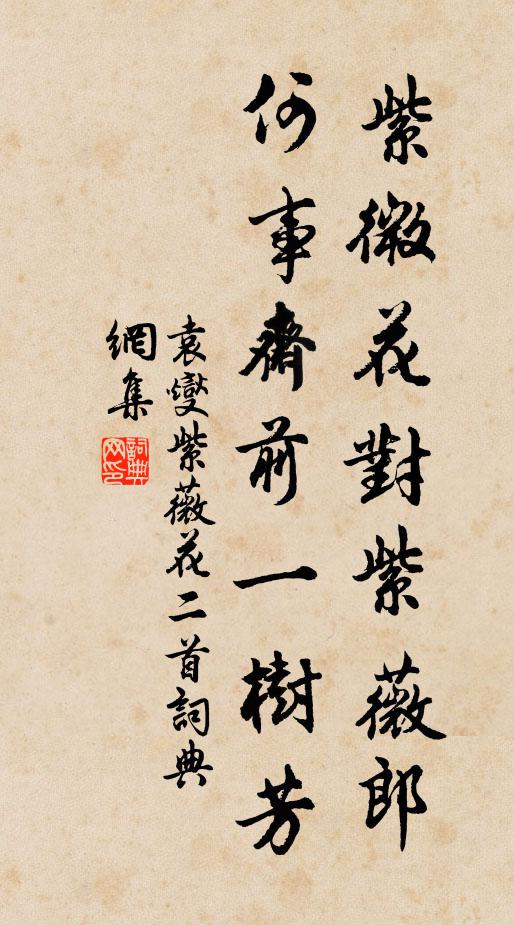 紫微花對紫薇郎
何事齋前一樹芳
袁燮紫薇花二首詞典
網集
詞典
网印